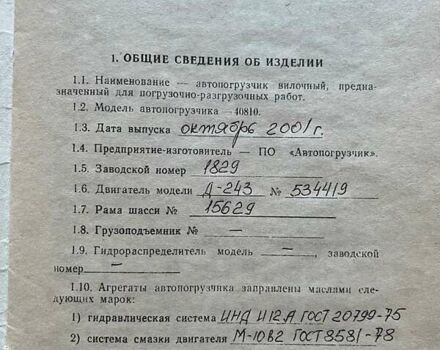 1. ОБЩИЕ СВЕДЕНИЯ ОБ ИЗДЕЛИИ
1.1. Наименование — автопогрузчик вилочный, предна-
значенный для погрузочно-разгрузочных работ.
1.2. Модель автопогрузчика —40810.
1.3. Дата выпуска октябрь 2001г.
1.4. Предприятие-изготовитель — ПО «Автопогрузчик».
1.5. Заводской номер 1829
1.6. Двигатель модели Д-243 № 534419
1.7. Рама шасси № 15629
1.8. Грузоподъемник № —
1.9. Гидрораспределитель модель —, заводской
номер —
1.10. Агрегаты автопогрузчика заправлены маслами сле-
дующих марок:
1) гидравлическая система ИНД И12А ГОСТ 20799-75
2) система смазки двигателя М-10В2 ГОСТ 8581-78